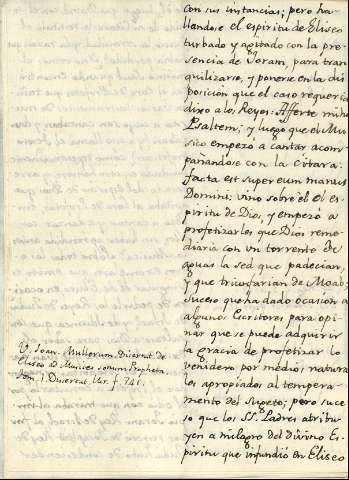 con sus instancias; pero ha-
llandose el espiritu de Eliseo
turbado y agitado con la pre-
sencia de Joram, para tran
quilizarse, y ponerse en la dis
posicion que el caso requeria
dixo a los Reyes: Afferte mihi
Psaltem; y luego que el Mu-
sico empezó a cantar acom-
pañandose con la Citara:
facta est super eum manus
Domini: vino sobre él el es-
piritu de Dios, y empezó a
profetizarles que Dios reme-
diaria con un torrente de
aguas la sed que padecian,
y que triunfarian de Moab:
suceso que ha dado ocasion a
algunos Escritores para opi-
nar que se puede adquirir
la gracia de profetizar lo
venidero por medios natura
les apropiados al tempera-
mento del Sugeto; pero suce
so que los SS. Padres atribu-
yen a milagro del Divino Es-
piritu que infundió en Eliseo
V. Joan. Mullerum. Disertat. de
Eliseo ad Musices sonum Propheta.
tom. 1. f. 241.